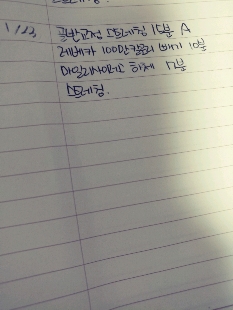 1/23 골반교정 스트레칭 15분 A
레베카 100만칼로리 빼기 10분
마일리사이러스 하체 17분
스트레칭.